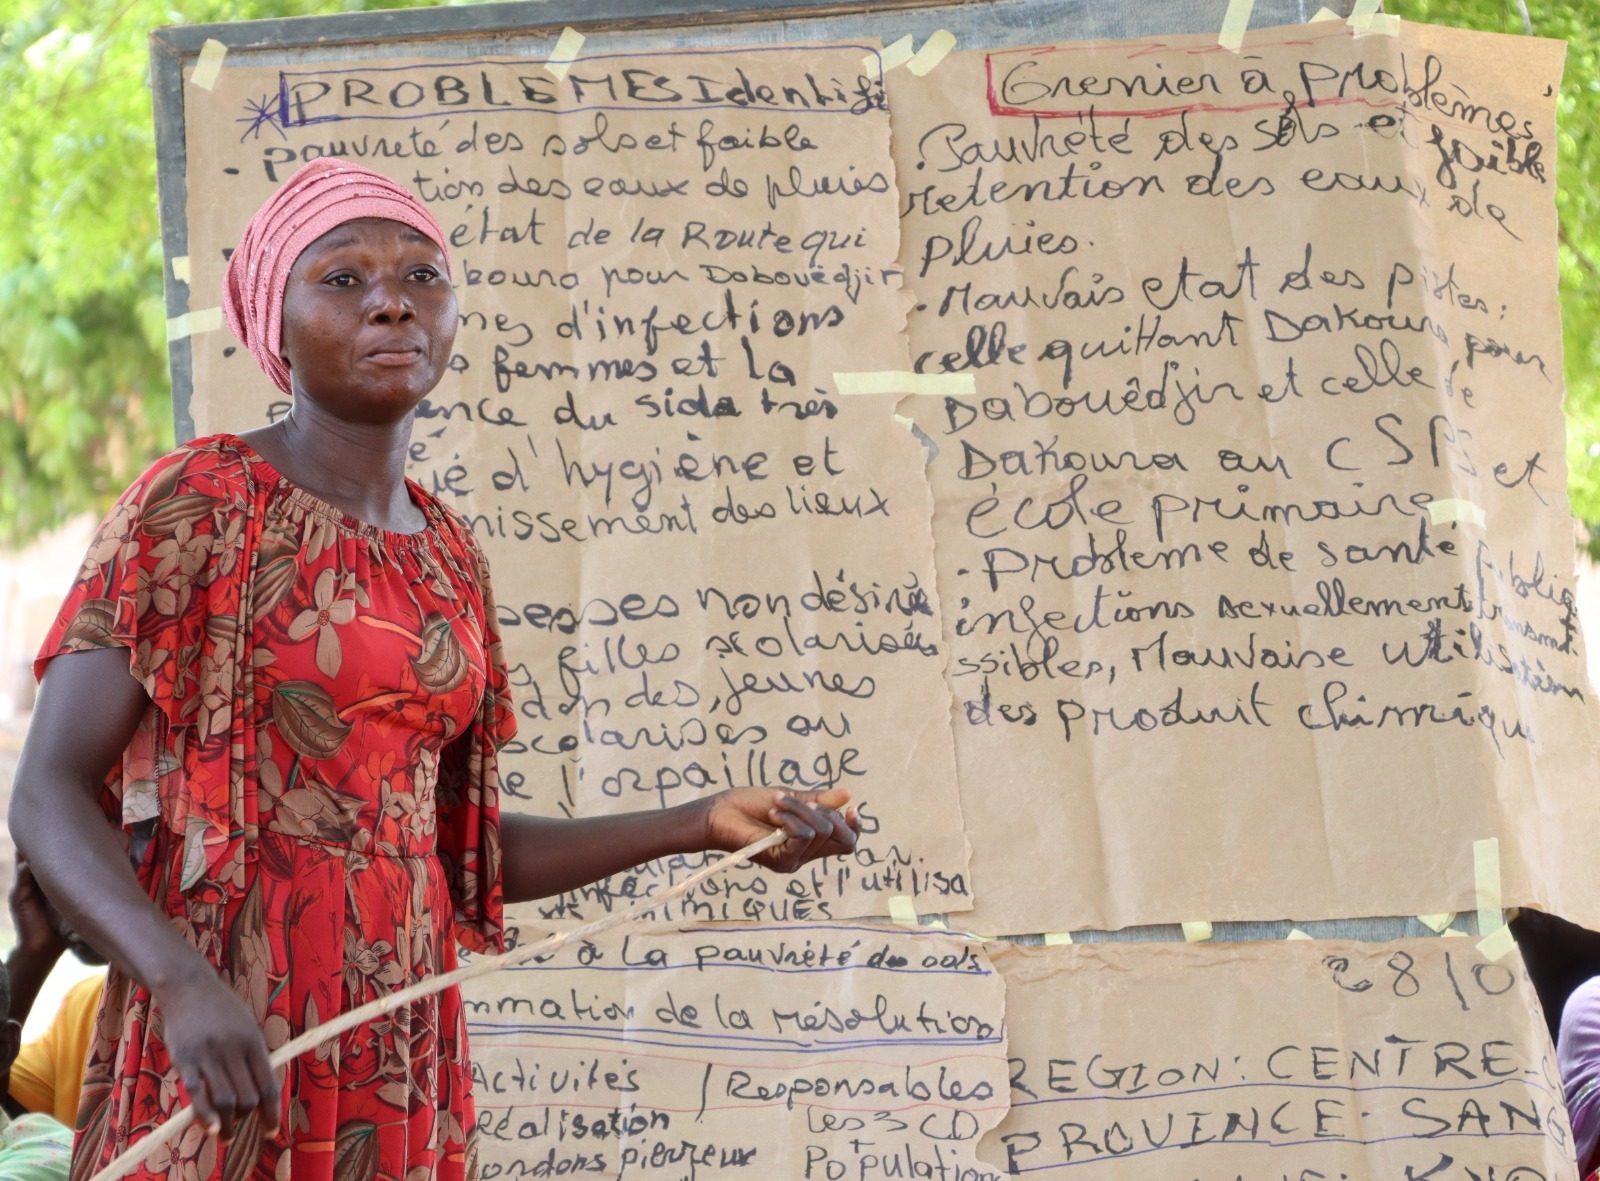 PROBLEMES Identifi
. pauvreté des sols et faible
tion des eaux de pluies
état de la Route qui
koura pour Dabouëdjin
mes d'infections
femmes et la
ence du sida très
é
d'hygiène et
nissement des lieux
sesses non désirée
filles scolarisées
des jeunes
scolarisés au
l'orpaillage
et l'utilisa
IMIQUES
Grenier à problèmes
. Pauvreté des sols et faible
retention des eaux de
pluies.
. Mauvais etat des pistes:
celle quittant Dakoura pour
Dabouêdjin et celle de
Dakoura au CSPS et
école primaire
. Problème de santé publiq
infections sexuellement transmi
ssibles, Mauvaise utilisation
des produit chimiqu
à la pauvreté des sols
mmation de la résolution
Activités / Responsables
Réalisation les 3 CD
cordons pierreux Population
28/0
REGION: CENTRE-
PROVINCE: SANG